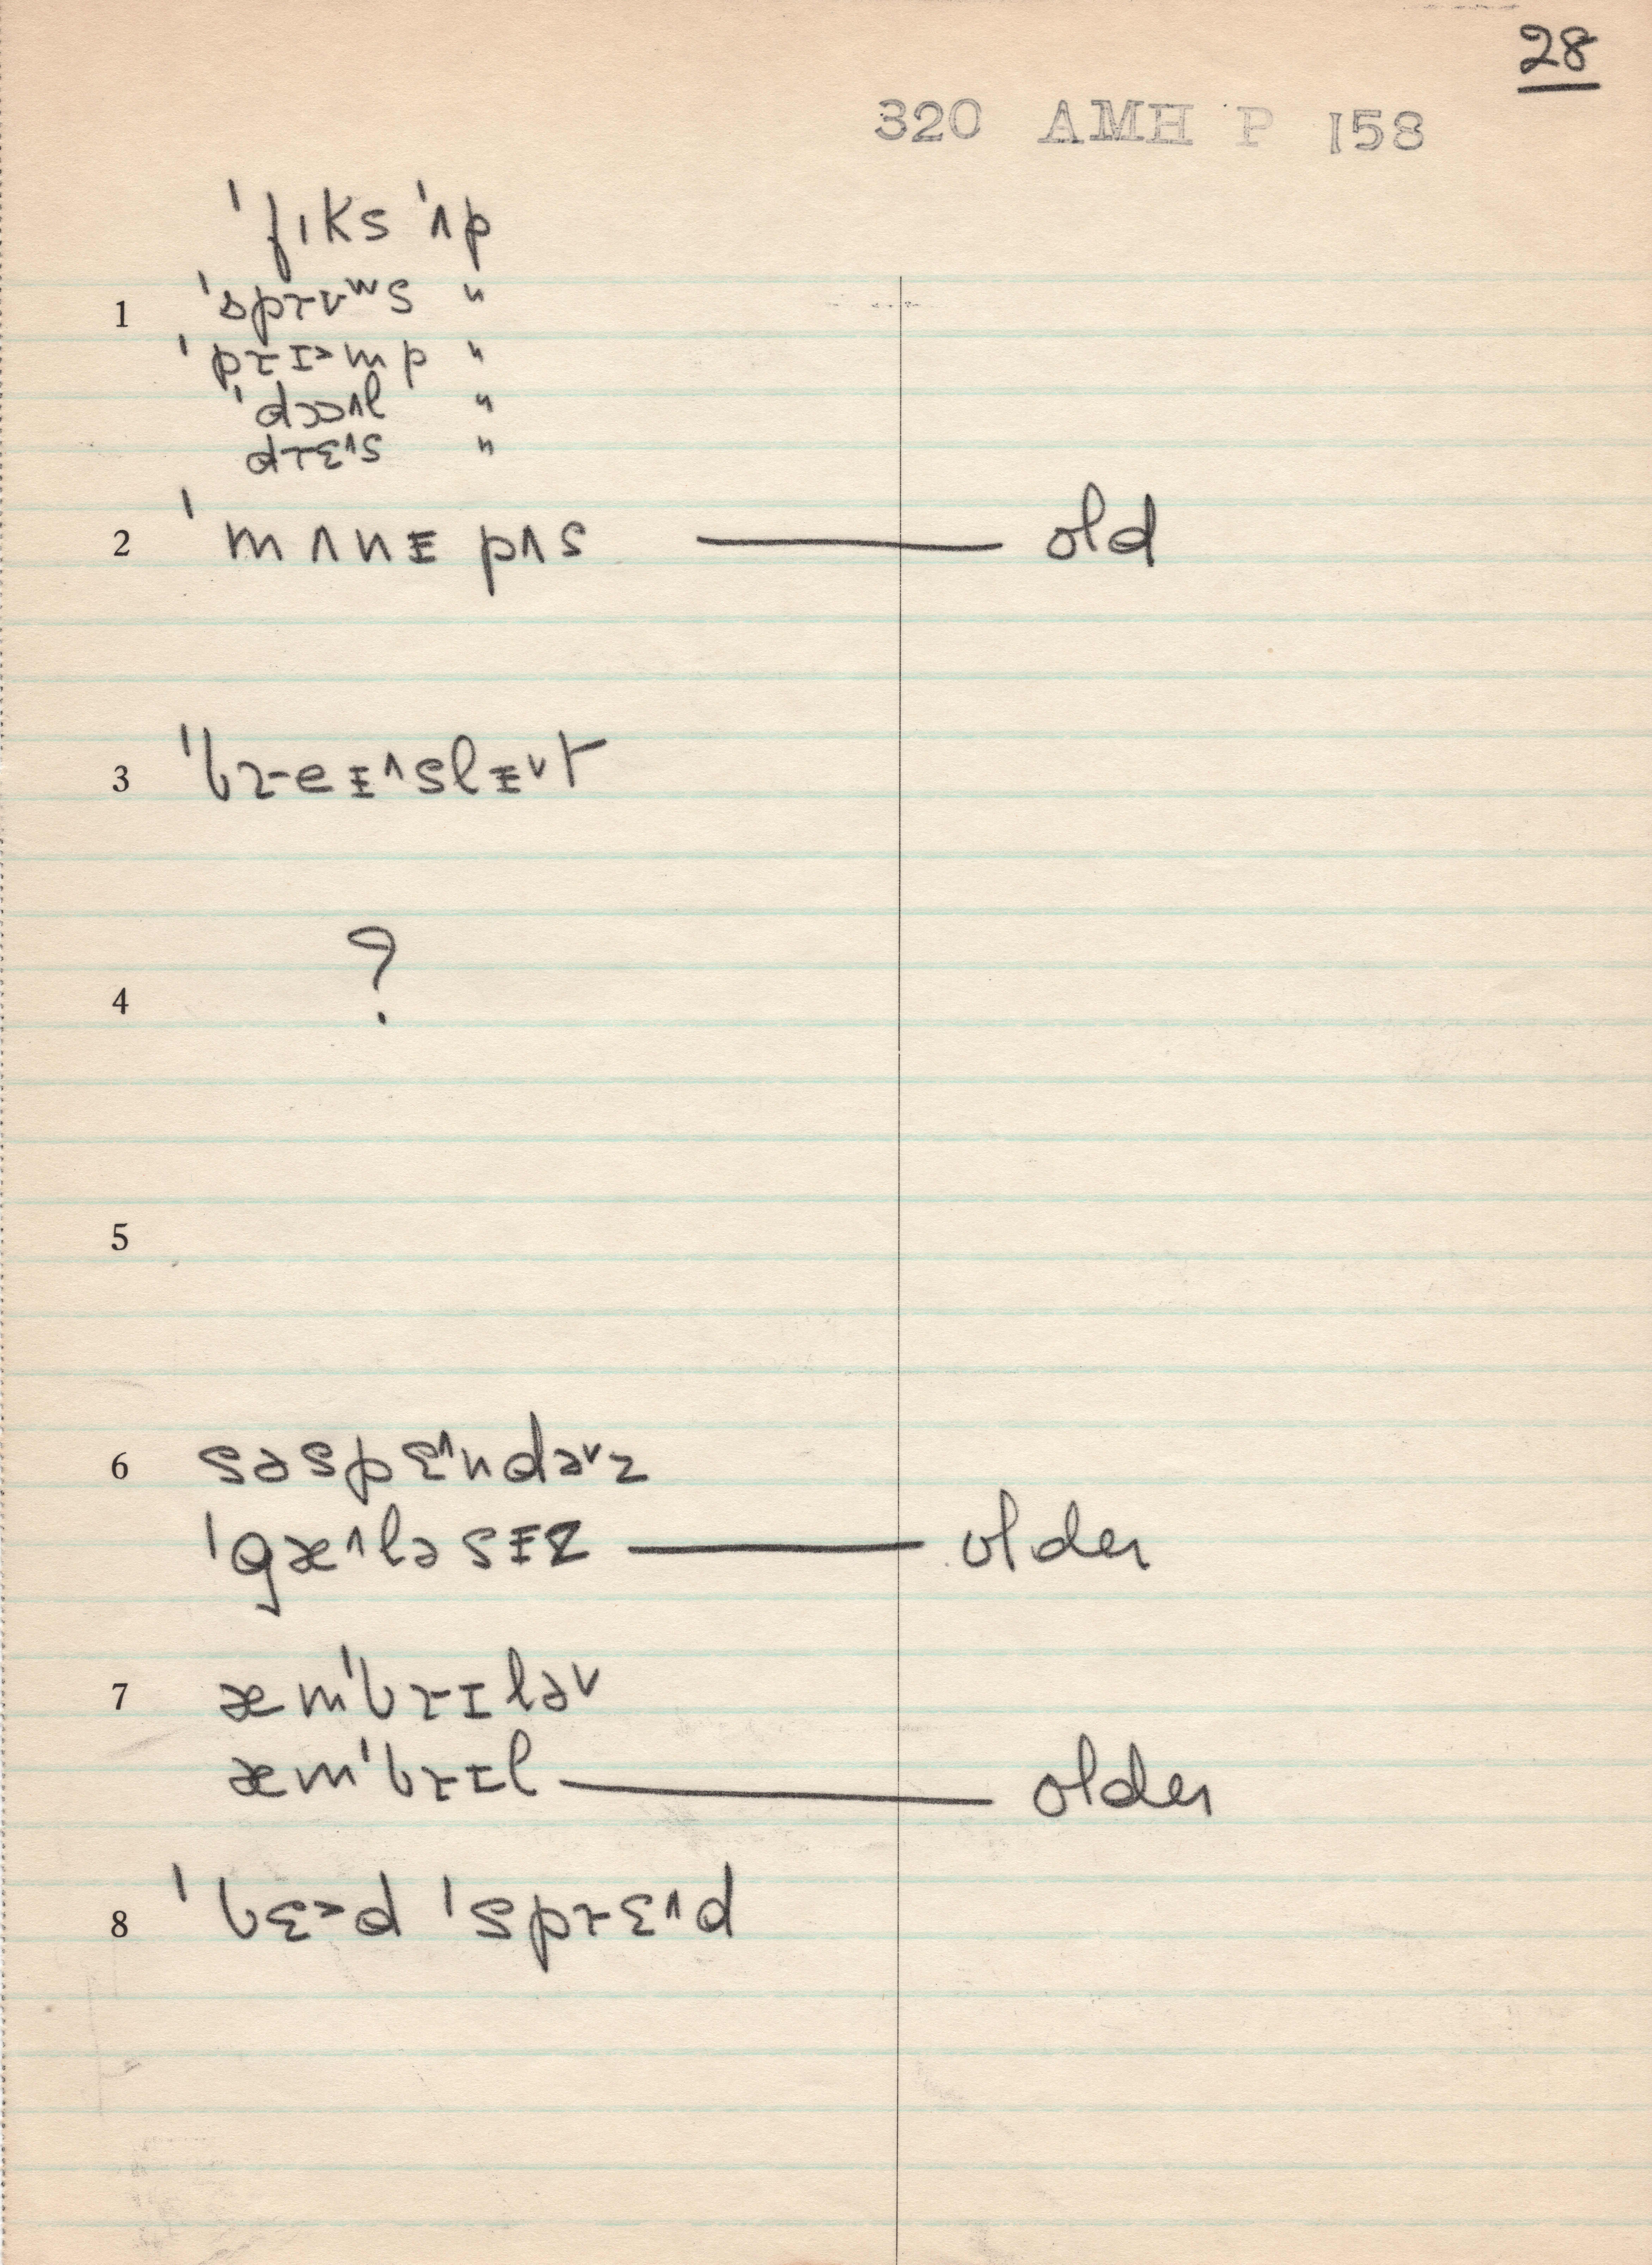 28
320 AMH P 158
ˈfɪks ˈʌp
1 ˈsprʊʷs "
ˈprɪ˃mp "
ˈdɔɔ˄l "
drɛ˄s "
2 ˈmʌnɪ pʌs — old
3 ˈbreɪ˄slɪ˅t
4 ?
5
6 səspɛ˄ndə˅z
ˈgæ˄ləsɪz — older
7 æmˈbrɪlə˅
æmˈbrɪl — older
8 ˈbɛ˃d ˈsprɛ˄d